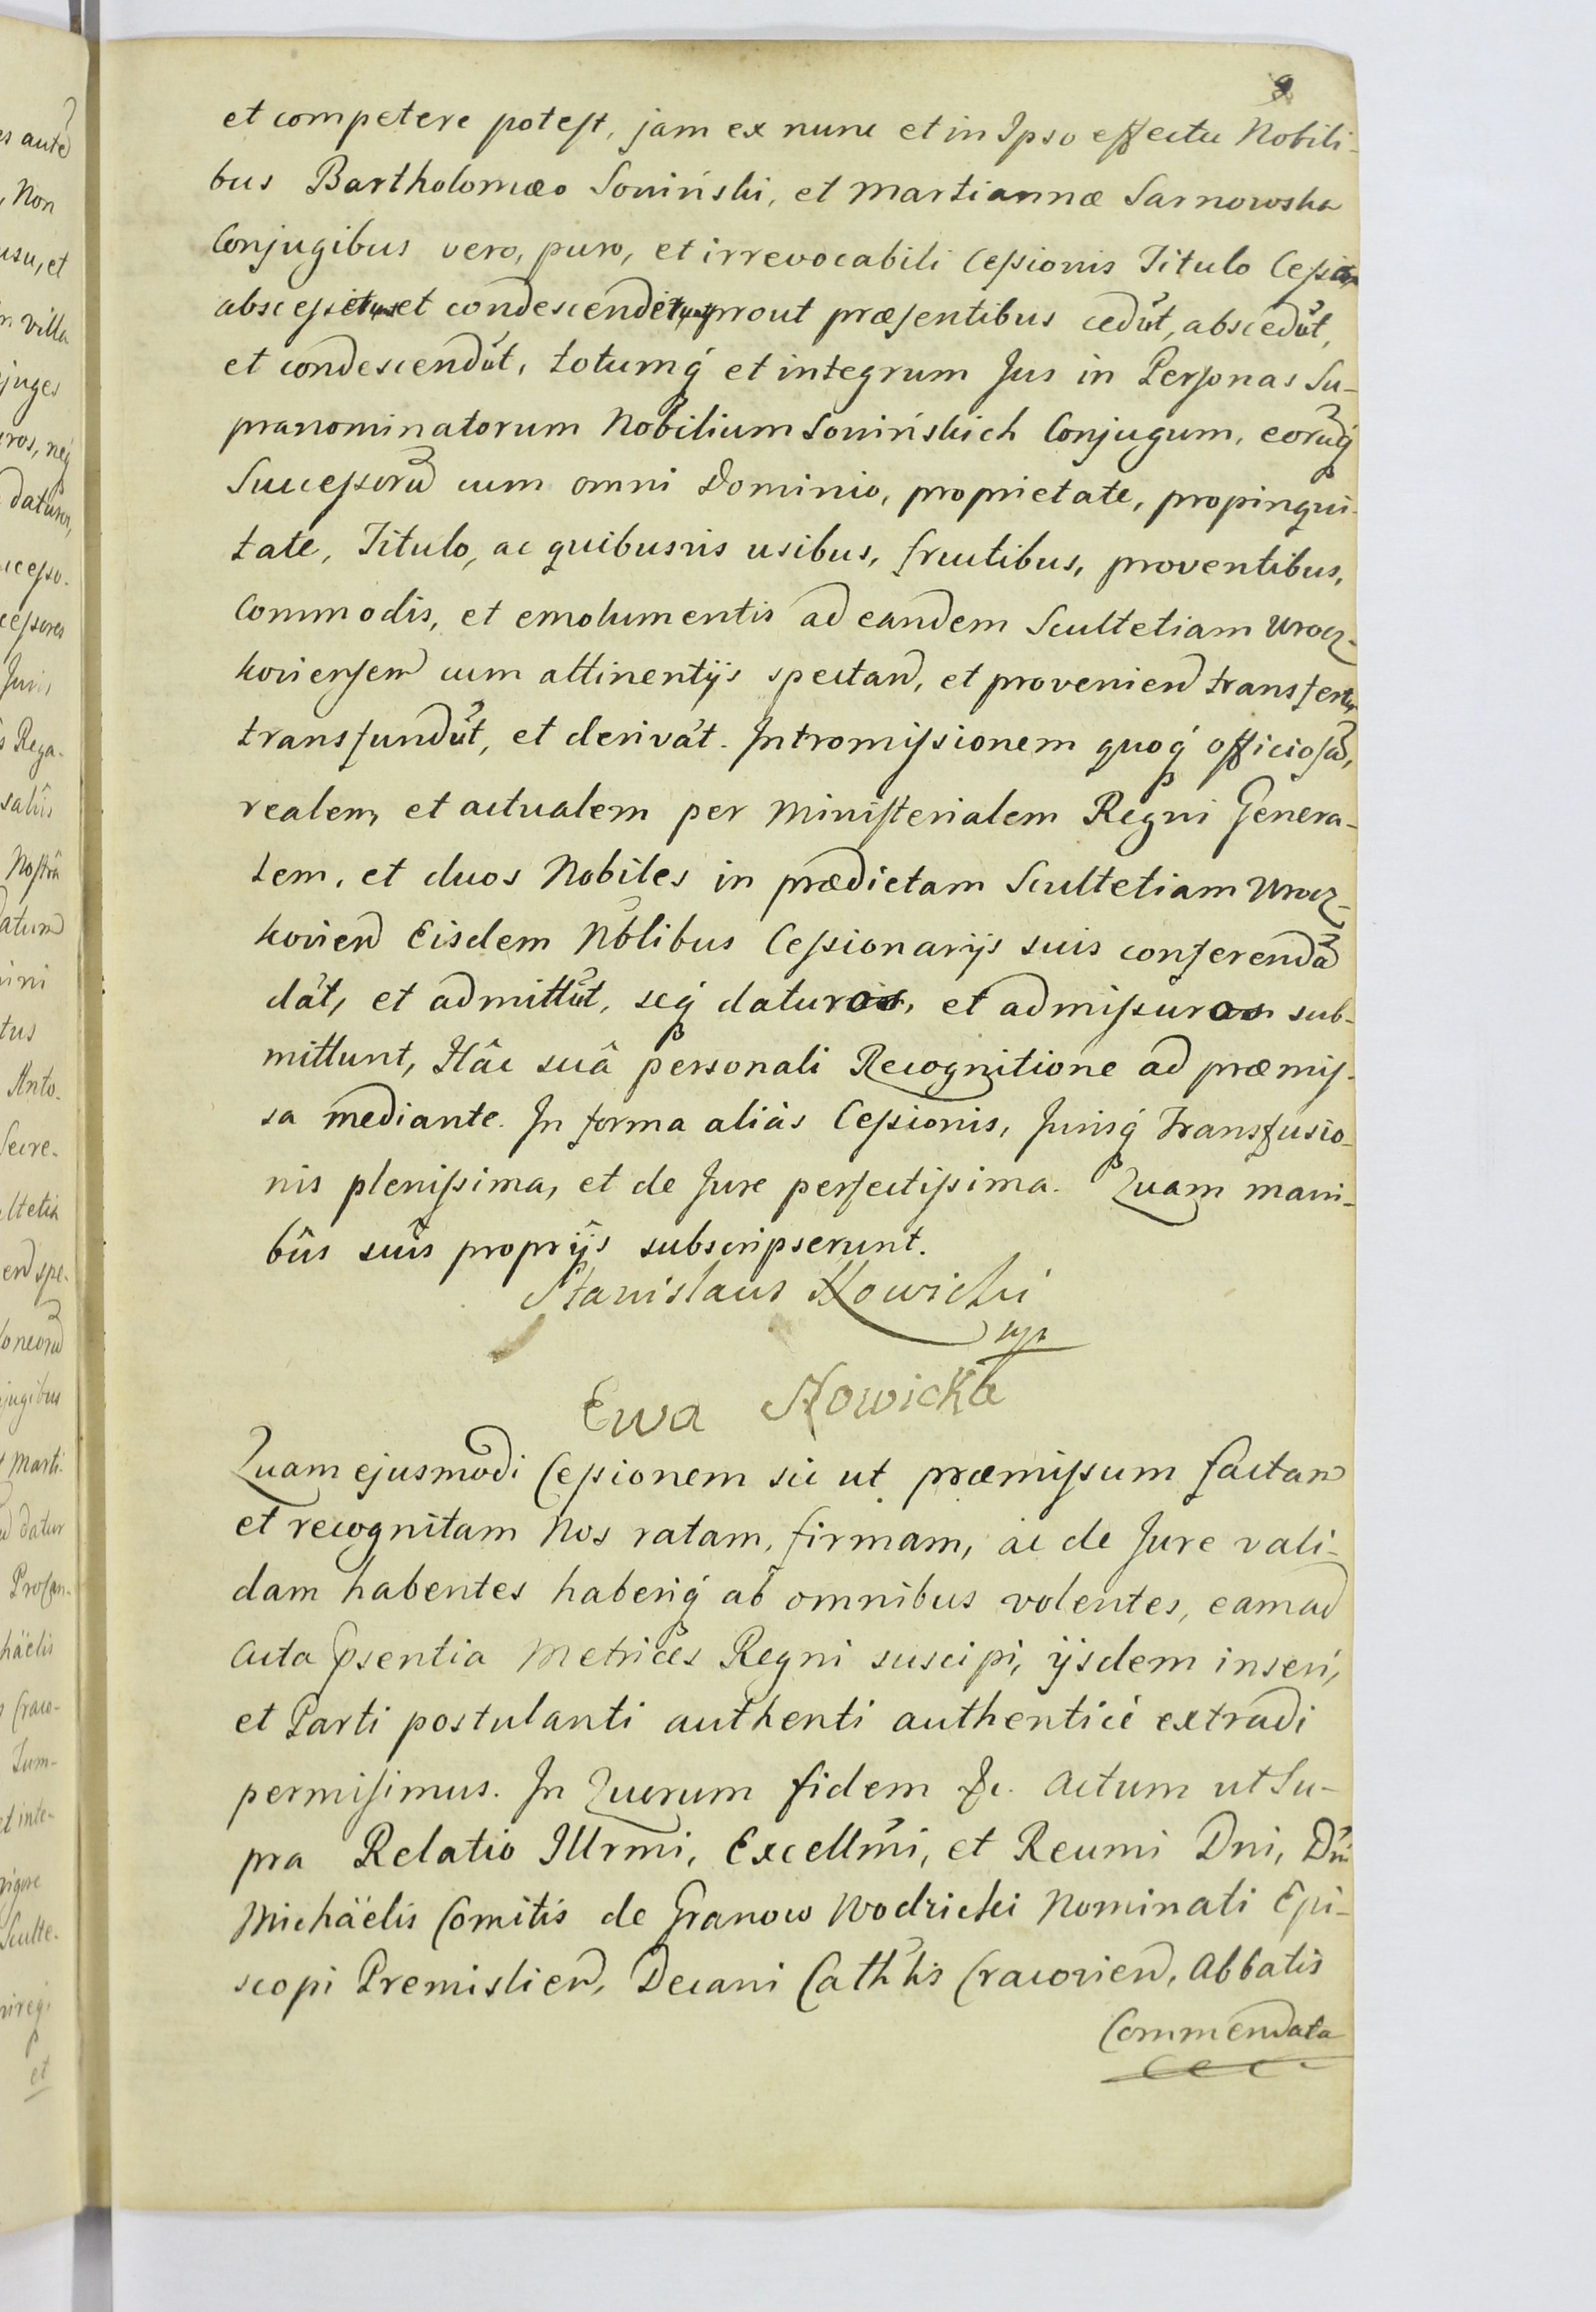 9
et competere potest, jam ex nunc et in Ipso effectu Nobili-
bus Bartholomæo Soviński, et Martiannæ Sarnowska
Conjugibus vero, puro, et irrevocabili Cessionis Titulo
et condescenderunt prout præsentibus cedūt, abscedūt,
et condescendūt, totumq́ et integrum Jus in Personas Su-
pranominatorum Nobilium Sovińskich Conjugum, eorūq́
Successorū cum omni Dominio, proprietate, propinqui-
tate, Titulo, ac quibusvis usibus, fructibus, proventibus,
Commodis, et emolumentis ad eandem Scultetiam Wrocz-
koviensem cum attinentijs spectan, et provenien transfert
transfundūt, et derivāt. Intromissionem quoq́ officiosā,
realem, et actualem per Ministerialem Regni Genera-
lem, et duos Nobiles in prædictam Scultetiam Wrocz-
kovien Eisdem Nōblibus Cessionarijs suis conferendā
dāt, et admittūt, seq́ daturos, et admissuros sub-
mittunt, Hâc suâ personali Recognitione ad præmis-
sa mediante. In forma aliàs Cessionis, Jurisq́ Transfusio-
nis plenissima, et de Jure perfectissima. Quam mani-
bûs suîs proprijs subscripserunt.
Stanislaus Nowicki
mp
Ewa Nowicka
Quam ejusmodi Cessionem sic ut præmissum factam
et recognitam Nos ratam, firmam, ac de Jure vali-
dam habentes haberiq́ ab omnibus volentes, eam ad
Acta psentia Metrices Regni suscipi, ijsdem inseri,
et Parti postulanti authenti authenticè extradi
permisimus. In Quorum fidem &c. Actum ut Su-
pra Relatio Illrmi, Excellm̃i, et Reumi Dni, Dn̄i
Michäelis Comitis de Granow Wodzicki Nominati Epi-
scopi Premislien, Decani Cath̃lis Cracovien, Abbatis
Commendata